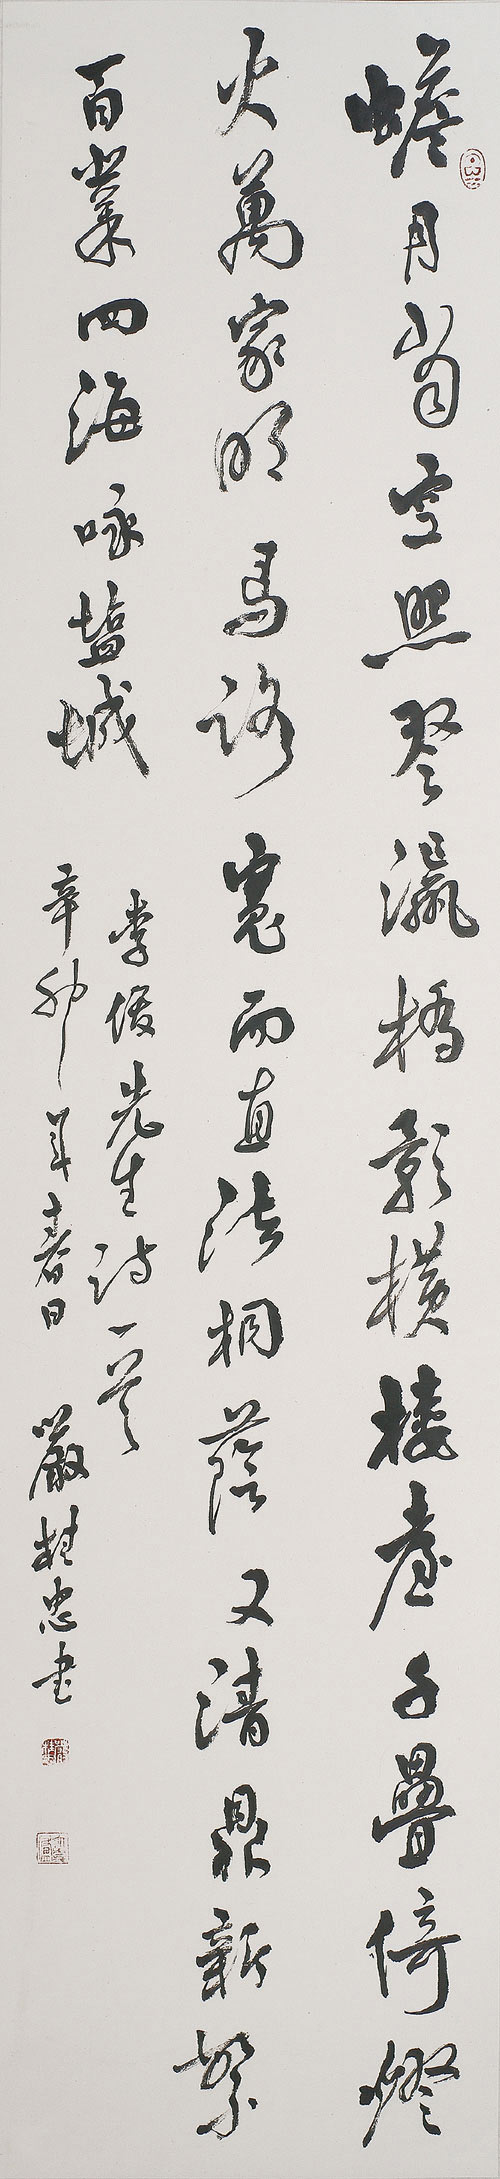 蟾月當空照登瀛橋影橫樓臺千疊倚燈
火萬家明馬路寬而直法桐蔭又清鼎新繁
百業四海咏塩城
李俊先生詩一首
辛卯年春日 嚴桂忠書